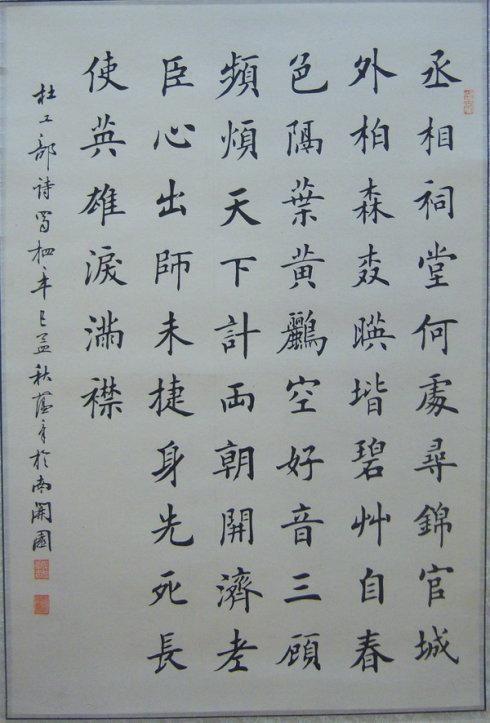 丞相祠堂何處尋錦官城
外柏森森暎堦碧艸自春
色隔葉黃鸝空好音三顧
頻煩天下計両朝開濟老
臣心出師未捷身先死長
使英雄淚滿襟
杜工部詩蜀相辛巳孟秋於南開園